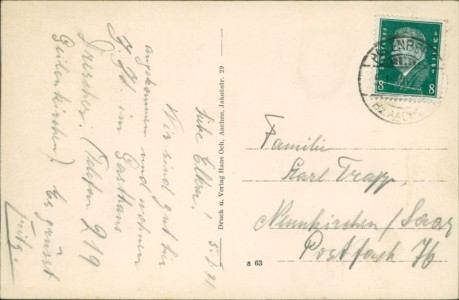 Liebe Eltern!
5.1.31
Wir sind gut hier
angekommen und wohnen
z. Zt. im Gasthaus
Drescher. (Telefon 219
Geilenkirchen). Es grüsst
Fritz
Druck u. Verlag Hans Och, Aachen, Jakobstr. 29
a 63
8 8
Familie
Karl Trapp,
Neunkirchen/Saar
Postfach 76